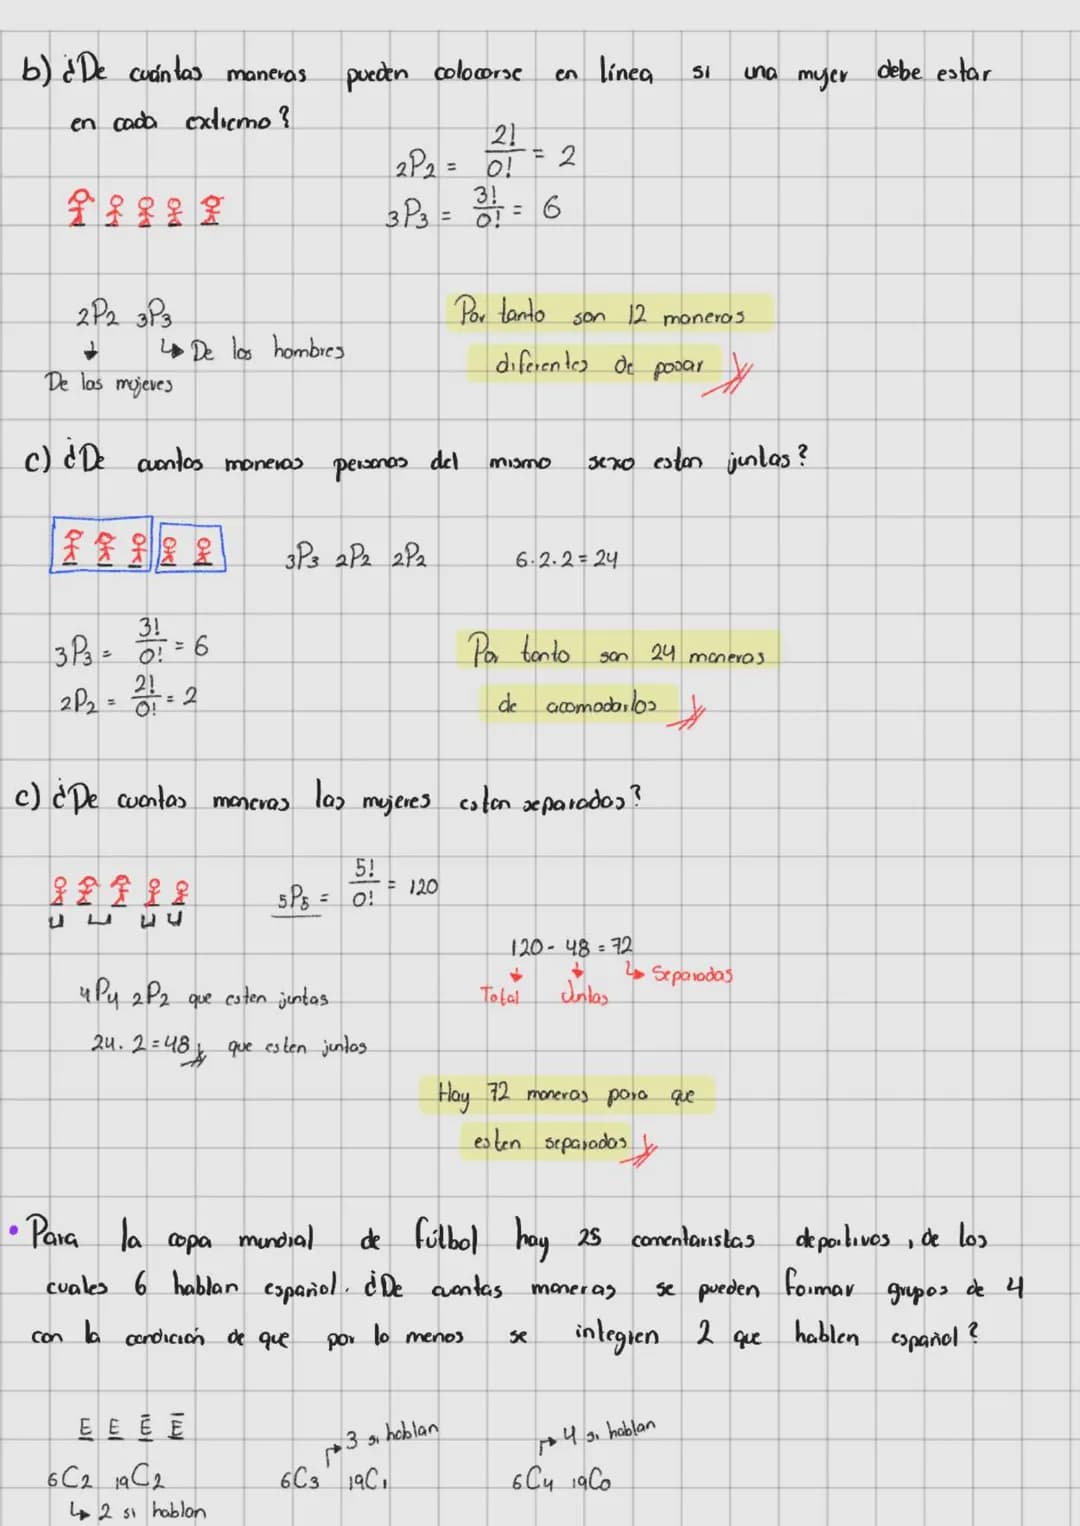 b) ¿De cuántas maneras pueden colocarse en línea si una mujer debe estar
en cada extremo?
2P2 = 2!/0! = 2
3P3 = 3!/0! = 6
2P2 3P3
↳ De los hombres
De las mujeres
Por tanto son 12 maneras
diferentes de posar
c) ¿De cuantas maneras personas del mismo sexo estan juntas?
3P3 2P2 2P2 6·2·2=24
3P3 = 3!/0! = 6
2P2 = 2!/0! = 2
Por tanto son 24 maneras
de acomodarlos
c) ¿De cuantas maneras las mujeres estan separadas?
5P5 = 5!/0! = 120
120 - 48 = 72
Total Juntas ↳ Separadas
4P4 2P2 que esten juntas
24·2=48 que esten juntas
Hay 72 maneras para que
esten separadas
• Para la copa mundial de fútbol hay 25 comentaristas deportivos, de los
cuales 6 hablan español. ¿De cuantas maneras se pueden formar grupos de 4
con la condición de que por lo menos se integren 2 que hablen español?
E E Ē Ē
3 si hablan
4 si hablan
6C2 19C2 6C3 19C1 6C4 19C0
↳ 2 si hablan